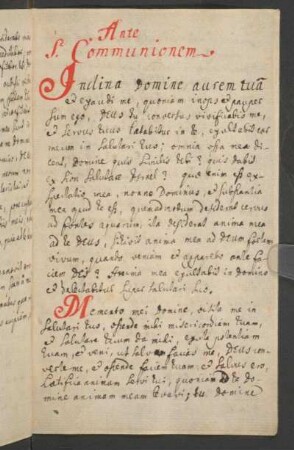 Ante
S. Communionem
Inclina Domine aurem tuã
et exaudi me, quoniam inops et pauper
sum ego, Deus tu conversus vivificabis me,
et servus tuus lætabitur in te, exultabit cor
meum in salutari tuo; omnia ossa mea di
cent, Domine quis similis tibi? quis dabit
ex Sion salutare Israel? quæ enim est ex
pectatio mea, nonne Dominus, et substantia
mea apud te est, quemadmodum desiderat cervus
ad fontes aquarum, ita desiderat anima mea
ad te Deus, sitivit anima mea ad Deum fortem
vivum, quando veniam et apparebo ante fa
ciem Dei? Anima mea exultabit in Domino
et delectabitur super salutari suo.
Memento mei Domine, visita me in
salutari tuo, ostende mihi misericordiam tuam,
et salutare tuum da mihi, excita potentiam
tuam, et veni, ut salvum facias me, Deus con
verte me, et ostende faciem tuam, et salvus ero,
Lætifica animam servi tui, quoniam ad te Do
mine animam meam levavi, Domine